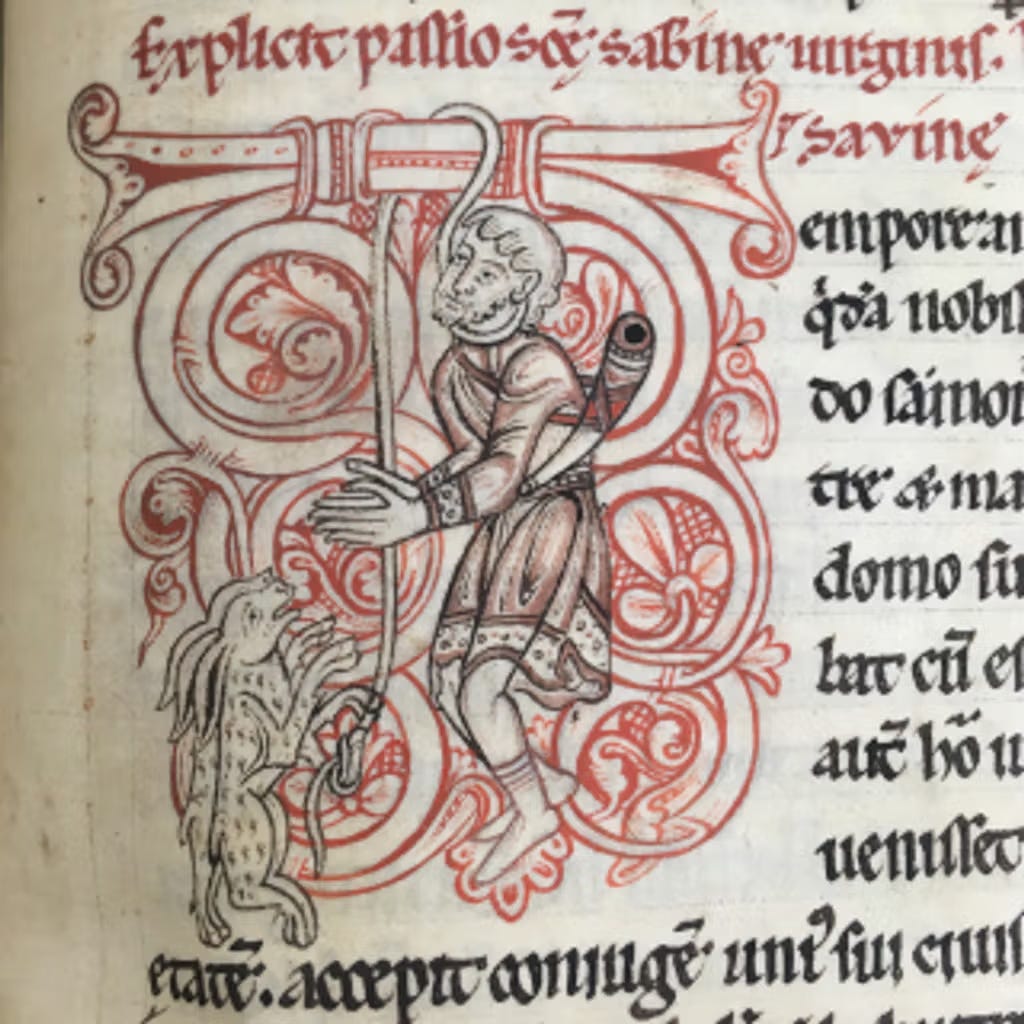 Explicit passio scē sabinę uirginis.
savinę
empore
nobil
do
tre & ma
domo su
bat cū es
autē hō u
uenisset
etatē. accepit coniugē uni sui ciuis